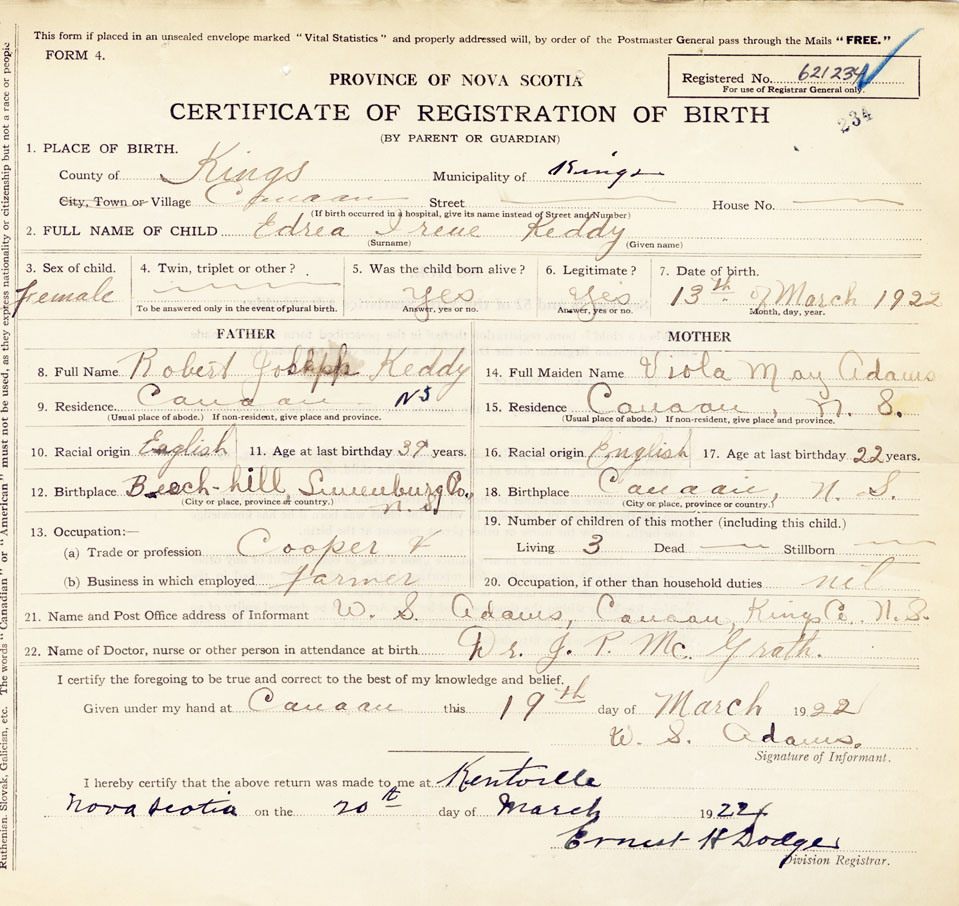 This form if placed in an unsealed envelope marked "Vital Statistics" and properly addressed will, by order of the Postmaster General pass through the Mails "FREE."
FORM 4.
PROVINCE OF NOVA SCOTIA
Registered No. 621234
For use of Registrar General only.
234
CERTIFICATE OF REGISTRATION OF BIRTH
(BY PARENT OR GUARDIAN)
1. PLACE OF BIRTH.
County of Kings Municipality of Kings
City, Town or Village Canaan Street House No.
(If birth occurred in a hospital, give its name instead of Street and Number)
2. FULL NAME OF CHILD Edrea Irene Keddy
(Surname) (Given name)
3. Sex of child. 4. Twin, triplet or other? 5. Was the child born alive? 6. Legitimate? 7. Date of birth.
female Yes Yes 13th of March 1922
To be answered only in the event of plural birth. Answer, yes or no. Answer, yes or no. Month, day, year.
FATHER MOTHER
8. Full Name Robert Joseph Keddy 14. Full Maiden Name Viola May Adams
9. Residence Canaan NS 15. Residence Canaan, N. S.
(Usual place of abode.) If non-resident, give place and province. (Usual place of abode.) If non-resident, give place and province.
10. Racial origin English 11. Age at last birthday 39 years. 16. Racial origin English 17. Age at last birthday 22 years.
12. Birthplace Beech-hill, Lunenburg Co., N. S. 18. Birthplace Canaan, N. S.
(City or place, province or country.) (City or place, province or country.)
13. Occupation:— 19. Number of children of this mother (including this child.)
(a) Trade or profession Cooper & Living 3 Dead Stillborn
(b) Business in which employed farmer 20. Occupation, if other than household duties nil
21. Name and Post Office address of Informant W. S. Adams, Canaan, Kings Co. N. S.
22. Name of Doctor, nurse or other person in attendance at birth Dr. J. P. Mc Grath.
I certify the foregoing to be true and correct to the best of my knowledge and belief.
Given under my hand at Canaan this 19th day of March 1922
W. S. Adams.
Signature of Informant.
I hereby certify that the above return was made to me at Kentville
Nova Scotia on the 20th day of March 1922
Ernest H Dodge
Division Registrar.
Ruthenian, Slovak, Galician, etc. The words "Canadian" or "American" must not be used, as they express nationality or citizenship but not a race or people